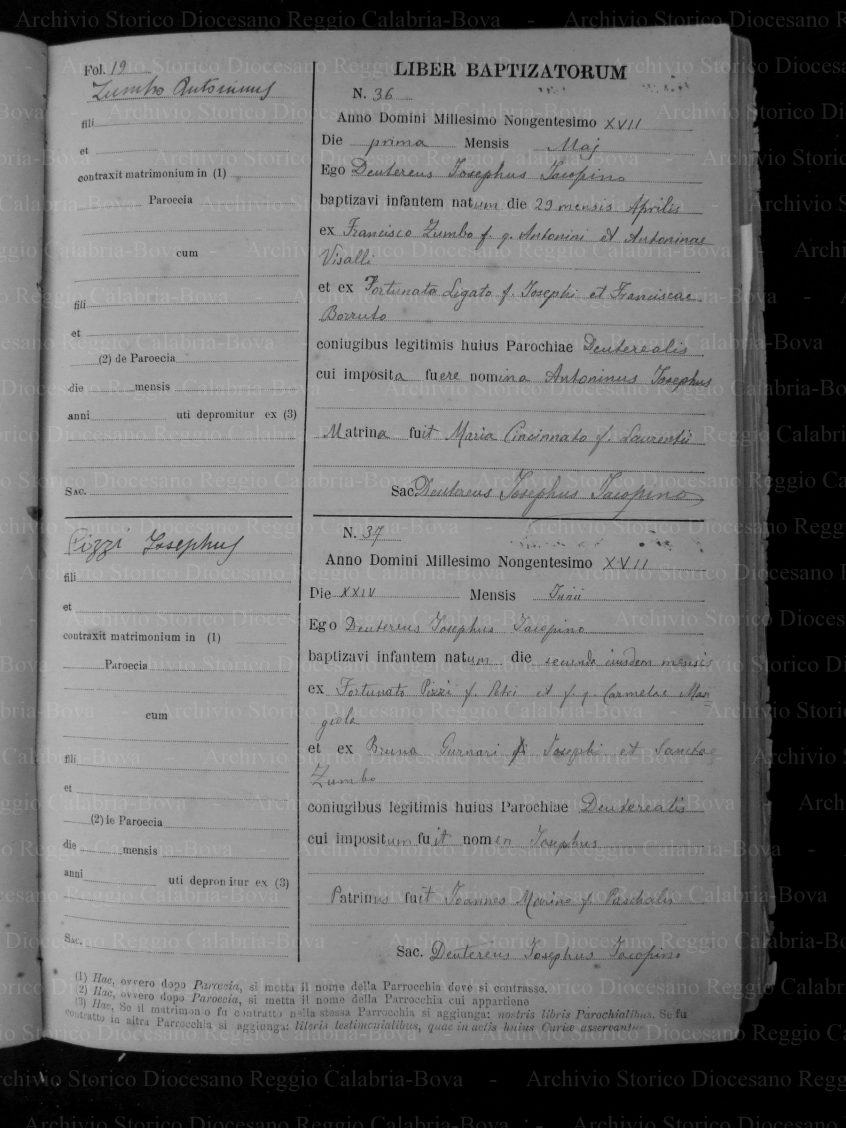 Fol. 19
Zumbo Antoninus
fili
et
contraxit matrimonium in (1)
Paroecia
cum
fili
et
(2) de Paroecia
die mensis
anni uti depromitur ex (3)
Sac.
LIBER BAPTIZATORUM
N. 36
Anno Domini Millesimo Nongentesimo XVII
Die prima Mensis Maj
Ego Deutereus Iosephus Iacopino
baptizavi infantem natum die 29 mensis Aprilis
ex Francisco Zumbo f. q. Antonini et Antoninae
Visalli
et ex Fortunata Ligato f. Iosephi et Franciscae
Borruto
coniugibus legitimis huius Parochiae Deuterealis
cui imposita fuere nomina Antoninus Iosephus
Matrina fuit Maria Cincinnato f. Laurentii
Sac. Deutereus Iosephus Iacopino
Pizzi Iosephus
fili
et
contraxit matrimonium in (1)
Paroecia
cum
fili
et
(2) le Paroecia
die mensis
anni uti depromitur ex (3)
Sac.
N. 37
Anno Domini Millesimo Nongentesimo XVII
Die XXIV Mensis Junii
Ego Deutereus Iosephus Iacopino
baptizavi infantem natum die secunda eiusdem mensis
ex Fortunato Pizzi f. Petri et f. q. Carmelae Man
giola
et ex Bruna Gurnari f. Iosephi et Sanctae
Zumbo
coniugibus legitimis huius Parochiae Deuterealis
cui impositum fuit nomen Iosephus
Patrinus fuit Ioannes Marino f. Paschalis
Sac. Deutereus Iosephus Iacopino
(1) Hac, ovvero dopo Paroecia, si metta il nome della Parrocchia dove si contrasse.
(2) Hac, ovvero dopo Paroecia, si metta il nome della Parrocchia cui appartiene
(3) Hac, Se il matrimonio fu contratto nella stessa Parrocchia si aggiunga: nostris libris Parochialibus. Se fu
contratto in altra Parrocchia si aggiunga: literis testimonialibus, quae in actis huius Curiæ asservantur
Archivio Storico Diocesano Reggio Calabria-Bova